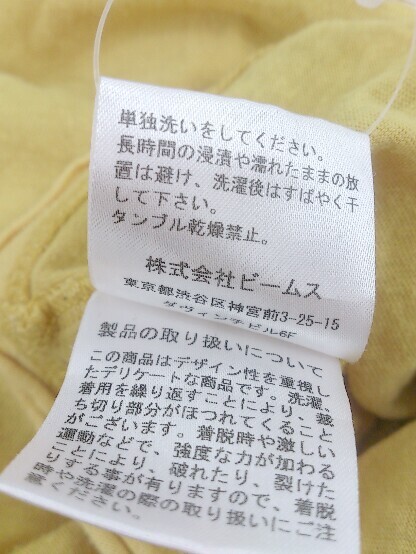 単独洗いをしてください。
長時間の浸漬や濡れたままの放
置は避け、洗濯後はすばやく干
して下さい。
タンブル乾燥禁止。
株式会社ビームス
東京都渋谷区神宮前3-25-15
ダヴィンチビル6F
製品の取り扱いについて
この商品はデザイン性を重視し
たデリケートな商品です。洗濯、
着用を繰り返すことにより、裁
ち切り部分がほつれてくること
がございます。着脱時や激しい
運動などで、強度な力が加わる
ことにより、破れたり、裂けた
りする事が有りますので、着脱
時や洗濯の際の取り扱いにご注
意ください。